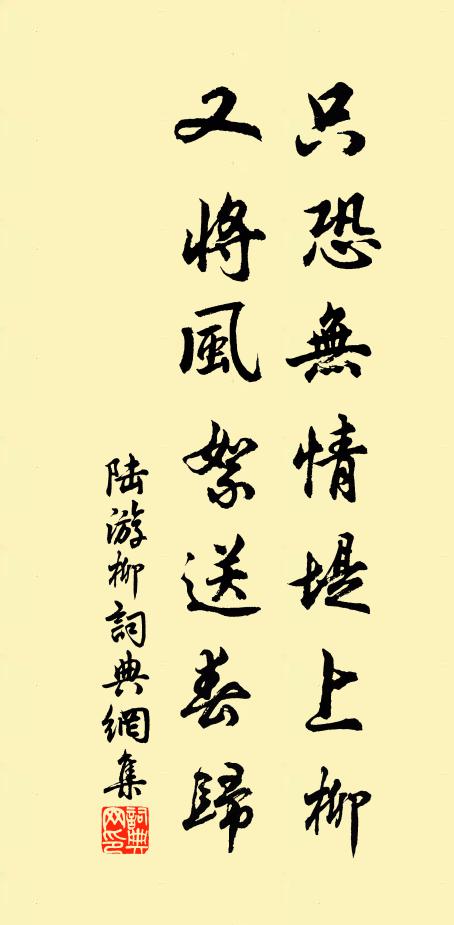 只恐無情堤上柳
又將風絮送春歸
陆游柳詞典網集
詞典网印